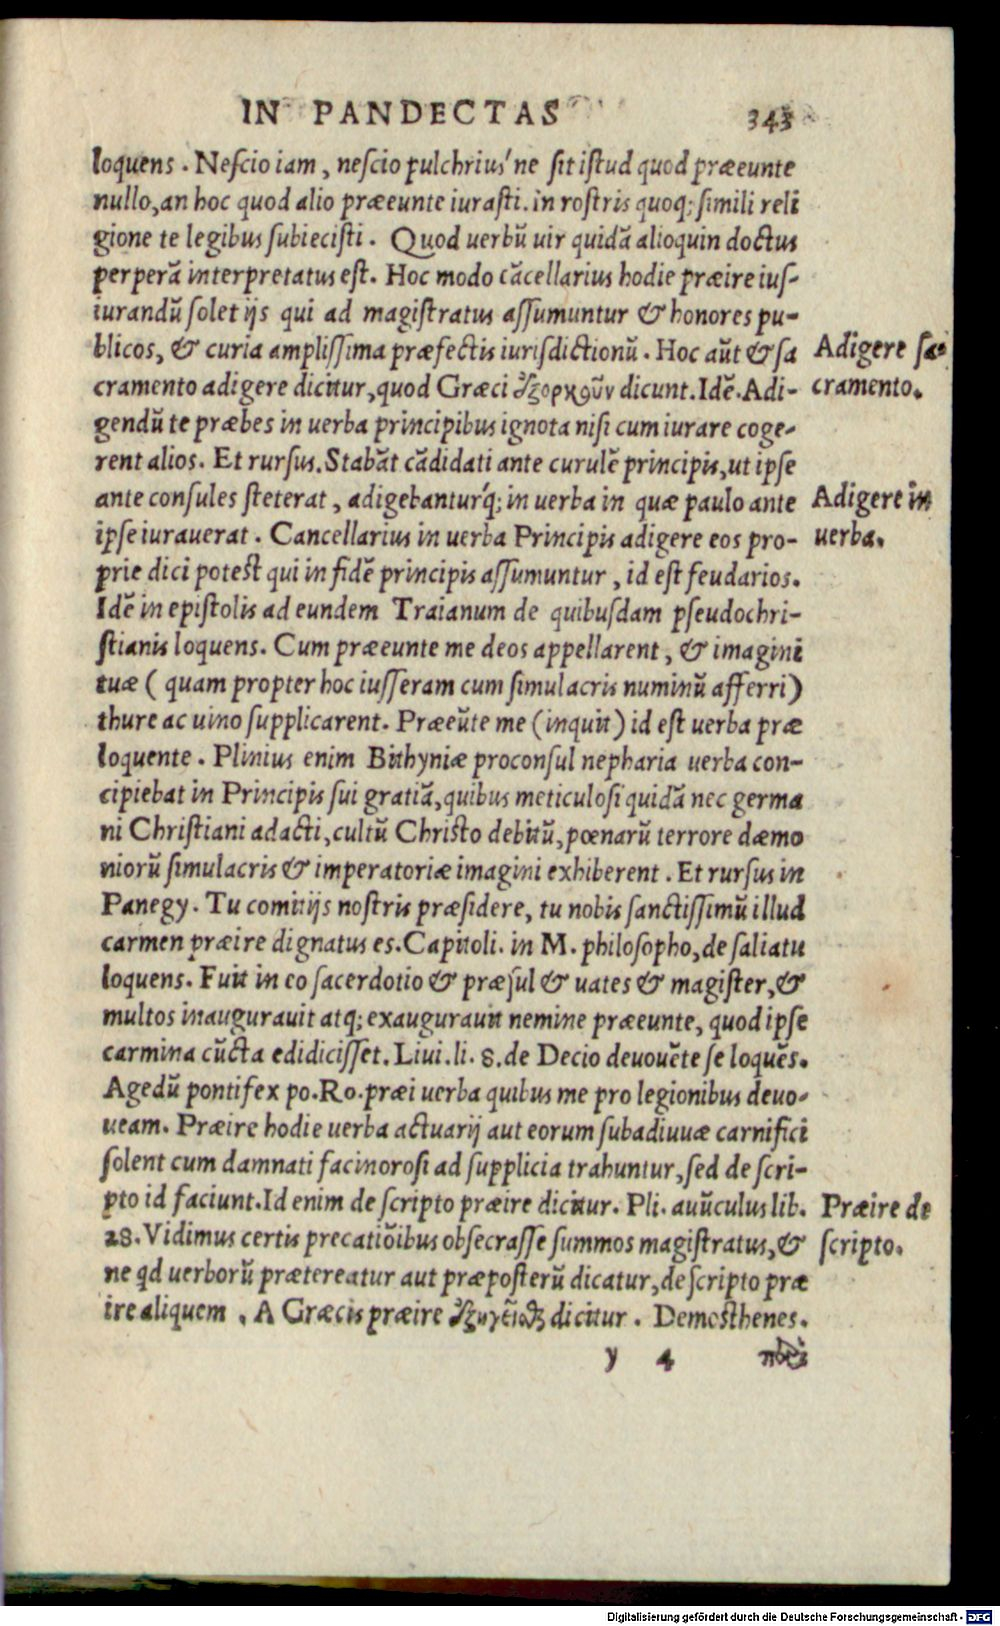 IN PANDECTAS 343
loquens. Nescio iam, nescio pulchrius'ne sit istud quod præeunte
nullo, an hoc quod alio præeunte iurasti. in rostris quoq; simili reli
gione te legibus subiecisti. Quod uerbũ uir quidã alioquin doctus
perperã interpretatus est. Hoc modo cãcellarius hodie præire ius-
iurandũ solet ijs qui ad magistratus assumuntur & honores pu-
blicos, & curia amplissima præfectis iurisdictionũ. Hoc aũt & sa
Adigere sa-
cramento adigere dicitur, quod Græci ἐξορκοῦν dicunt. Idẽ. Adi-
cramento.
gendũ te præbes in uerba principibus ignota nisi cum iurare coge-
rent alios. Et rursus. Stabãt cãdidati ante curulẽ principis, ut ipse
ante consules steterat, adigebanturq́; in uerba in quæ paulo ante
Adigere in
ipse iurauerat. Cancellarius in uerba Principis adigere eos pro-
uerba.
prie dici potest qui in fidẽ principis assumuntur, id est feudarios.
Idẽ in epistolis ad eundem Traianum de quibusdam pseudochri-
stianis loquens. Cum præeunte me deos appellarent, & imagini
tuæ ( quam propter hoc iusseram cum simulacris numinũ afferri)
thure ac uino supplicarent. Præeũte me (inquit) id est uerba præ
loquente. Plinius enim Bithyniæ proconsul nepharia uerba con-
cipiebat in Principis sui gratiã, quibus meticulosi quidã nec germa
ni Christiani adacti, cultũ Christo debitũ, pœnarũ terrore dæmo
niorũ simulacris & imperatoriæ imagini exhiberent. Et rursus in
Panegy. Tu comitijs nostris præsidere, tu nobis sanctissimũ illud
carmen præire dignatus es. Capitoli. in M. philosopho, de saliatu
loquens. Fuit in eo sacerdotio & præsul & uates & magister, &
multos inaugurauit atq; exaugurauit nemine præeunte, quod ipse
carmina cũcta edidicisset. Liui. li. 8. de Decio deuouẽte se loquẽs.
Agedũ pontifex po. Ro. præi uerba quibus me pro legionibus deuo-
ueam. Præire hodie uerba actuarij aut eorum subadiuuæ carnifici
solent cum damnati facinorosi ad supplicia trahuntur, sed de scri-
pto id faciunt. Id enim de scripto præire dicitur. Pli. auũculus lib.
Præire de
28. Vidimus certis precatiõibus obsecrasse summos magistratus, &
scripto.
ne qd uerborũ prætereatur aut præposterũ dicatur, de scripto præ
ire aliquem. A Græcis præire ἐξηγεῖσθαι dicitur. Demosthenes.
y 4
Digitalisierung gefördert durch die Deutsche Forschungsgemeinschaft - DFG